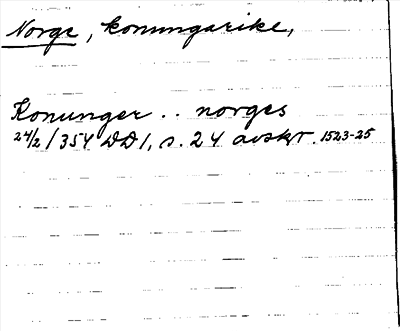 Norge, konungarike,
Konunger .. norges
24/2 1354 DD 1, s. 24 avskr. 1523-25